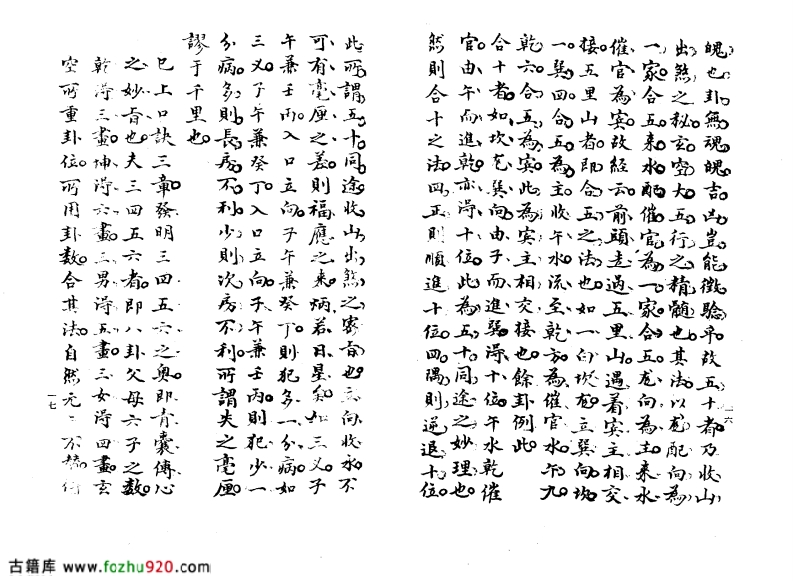 魄也卦無魂魄吉凶豈能徵驗乎故五十者乃收山
出煞之秘玄空大五行之精髓也其法以龙配向為
一家合五来水配催官為一家合五龙向為主来水
催官為宾故經云前頭走過五里山遇着宾主相交
接五里山者即合五之法也如一白坎龙立巽向坎
一巽四合五為主收午水流至乾方為催官水午九
乾六合五為宾此為宾主相交接也餘卦例此
合十者如坎龙巽向由子而進巽得十位午水乾催
官由午而進乾亦得十位此為五十同途之妙理也
然則合十之法四正則順進十位四隅則逆退十位
十六
此所謂五十同途收山出煞之密旨也立向收水不
可有毫厘之差則福應之来炳若日星矣如三义子
午兼壬丙入口立向子午兼癸丁則犯多一分病如
三义子午兼癸丁入口立向子午兼壬丙則犯少一
分病多則長房不利少則次房不利所謂失之毫厘
謬于千里也
已上口訣三章發明三四五六之奥即青囊傳心
之妙旨也夫三四五六者即八卦父母六子之数
乾得三畫坤得六畫三男得五畫三女得四畫玄
空所重卦位所用卦数合其法自然元元不替行
十七
古籍库 www.fozhu920.com